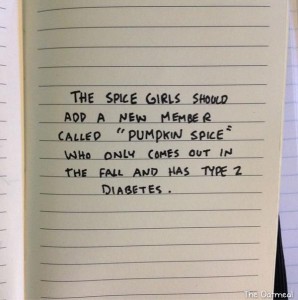 THE SPICE GIRLS SHOULD
ADD A NEW MEMBER
CALLED "PUMPKIN SPICE"
WHO ONLY COMES OUT IN
THE FALL AND HAS TYPE 2
DIABETES.
The Oatmeal